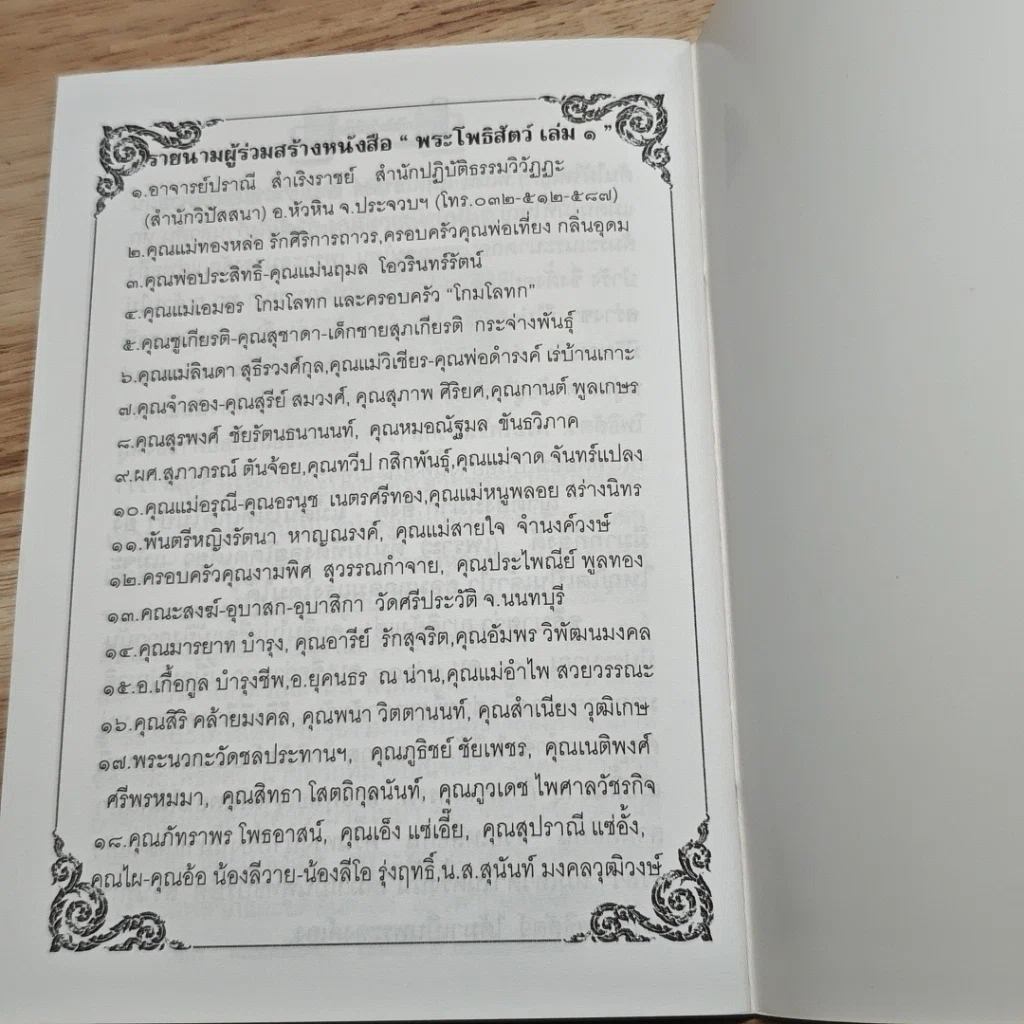 รายนามผู้ร่วมสร้างหนังสือ “ พระโพธิสัตว์ เล่ม ๑ ”
๑.อาจารย์ปราณี สำเริงราชย์ สำนักปฏิบัติธรรมวิวัฏฏะ
(สำนักวิปัสสนา) อ.หัวหิน จ.ประจวบฯ (โทร.๐๓๒-๕๑๒-๕๘๗)
๒.คุณแม่ทองหล่อ รักศิริการถาวร,ครอบครัวคุณพ่อเที่ยง กลิ่นอุดม
๓.คุณพ่อประสิทธิ์-คุณแม่นฤมล โอวรินทร์รัตน์
๔.คุณแม่เอมอร โกมโลทก และครอบครัว “โกมโลทก”
๕.คุณชูเกียรติ-คุณสุชาดา-เด็กชายสุภเกียรติ กระจ่างพันธุ์
๖.คุณแม่ลินดา สุธีรวงศ์กุล,คุณแม่วิเชียร-คุณพ่อดำรงค์ เร่บ้านเกาะ
๗.คุณจำลอง-คุณสุรีย์ สมวงศ์, คุณสุภาพ ศิริยศ,คุณกานต์ พูลเกษร
๘.คุณสุรพงศ์ ชัยรัตนธนานนท์, คุณหมอณัฐมล ขันธวิภาค
๙.ผศ.สุภาภรณ์ ตันจ้อย,คุณทวีป กสิกพันธุ์,คุณแม่จาด จันทร์แปลง
๑๐.คุณแม่อรุณี-คุณอรนุช เนตรศรีทอง,คุณแม่หนูพลอย สร่างนิทร
๑๑.พันตรีหญิงรัตนา หาญณรงค์, คุณแม่สายใจ จำนงค์วงษ์
๑๒.ครอบครัวคุณงามพิศ สุวรรณกำจาย, คุณประไพณีย์ พูลทอง
๑๓.คณะสงฆ์-อุบาสก-อุบาสิกา วัดศรีประวัติ จ.นนทบุรี
๑๔.คุณมารยาท บำรุง, คุณอารีย์ รักสุจริต,คุณอัมพร วิพัฒนมงคล
๑๕.อ.เกื้อกูล บำรุงชีพ,อ.ยุคนธร ณ น่าน,คุณแม่อำไพ สวยวรรณะ
๑๖.คุณสิริ คล้ายมงคล, คุณพนา วิตตานนท์, คุณสำเนียง วุฒิเกษ
๑๗.พระนวกะวัดชลประทานฯ, คุณภูธิชย์ ชัยเพชร, คุณเนติพงศ์
ศรีพรหมมา, คุณสิทธา โสตถิกุลนันท์, คุณภูวเดช ไพศาลวัชรกิจ
๑๘.คุณภัทราพร โพธอาสน์, คุณเอ็ง แซ่เอี๊ย, คุณสุปราณี แซ่อั้ง,
คุณไผ-คุณอ้อ น้องลีวาย-น้องลีโอ รุ่งฤทธิ์,น.ส.สุนันท์ มงคลวุฒิวงษ์